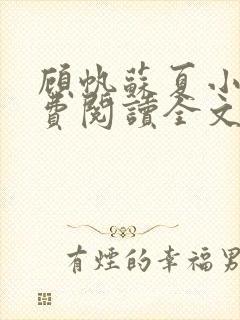 顾帆蘇夏小
費閱讀全文
有煙的幸福男